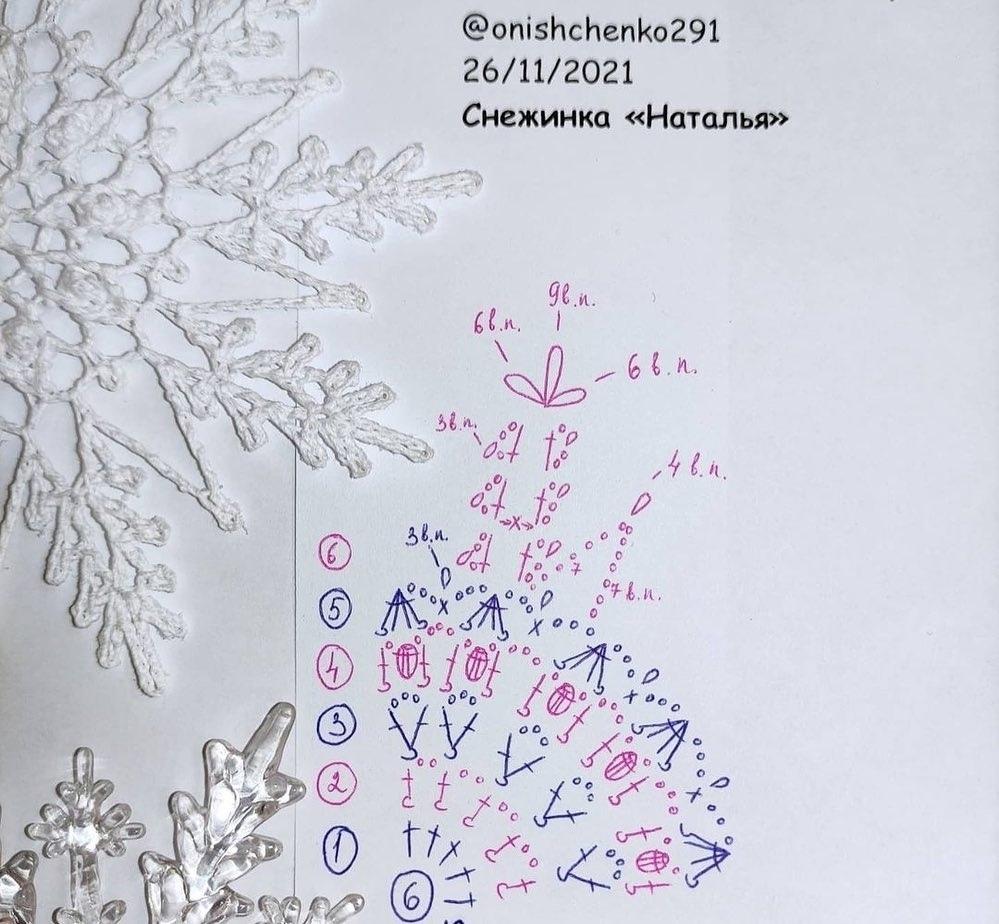 @onishchenko291
26/11/2021
Снежинка «Наталья»
9в.п.
6в.п.
6 в.п.
3в.п.
4 в.п.
3в.п.
6
7в.п.
5
4
3
2
1
6